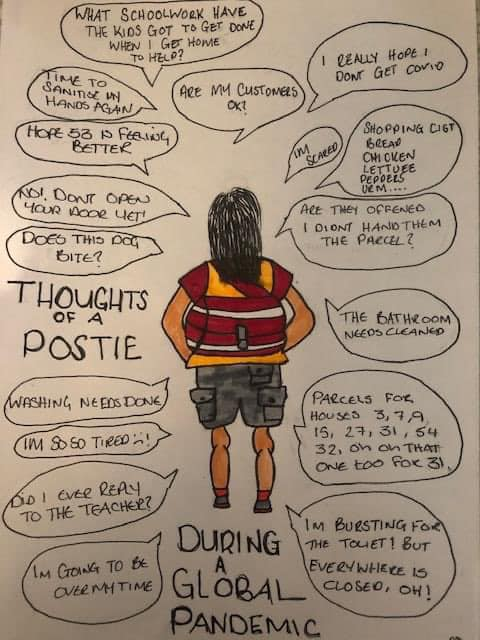 WHAT SCHOOLWORK HAVE
THE KIDS GOT TO GET DONE
WHEN I GET HOME
TO HELP?
I REALLY HOPE I
DONT GET COVID
TIME TO
SANITISE MY
HANDS AGAIN
ARE MY CUSTOMERS
OK?
HOPE 53 IS FEELING
BETTER
I'M
SCARED
SHOPPING LIST
BREAD
CHICKEN
LETTUCE
PEPPERS
URM....
NO!. DONT OPEN
YOUR DOOR YET!
ARE THEY OFFENED
I DIDNT HAND THEM
THE PARCEL?
DOES THIS DOG
BITE?
THOUGHTS
OF A
POSTIE
THE BATHROOM
NEEDS CLEANED
WASHING NEEDS DONE
PARCELS FOR
HOUSES 3, 7, 9,
15, 27, 31, 54
32, OH OH THAT
ONE TOO FOR 31.
IM SO SO TIRED :(!
DID I EVER REPLY
TO THE TEACHER?
I'M BURSTING FOR
THE TOLIET! BUT
EVERYWHERE IS
CLOSED, OH!
I'M GOING TO BE
OVER MY TIME
DURING
A
GLOBAL
PANDEMIC